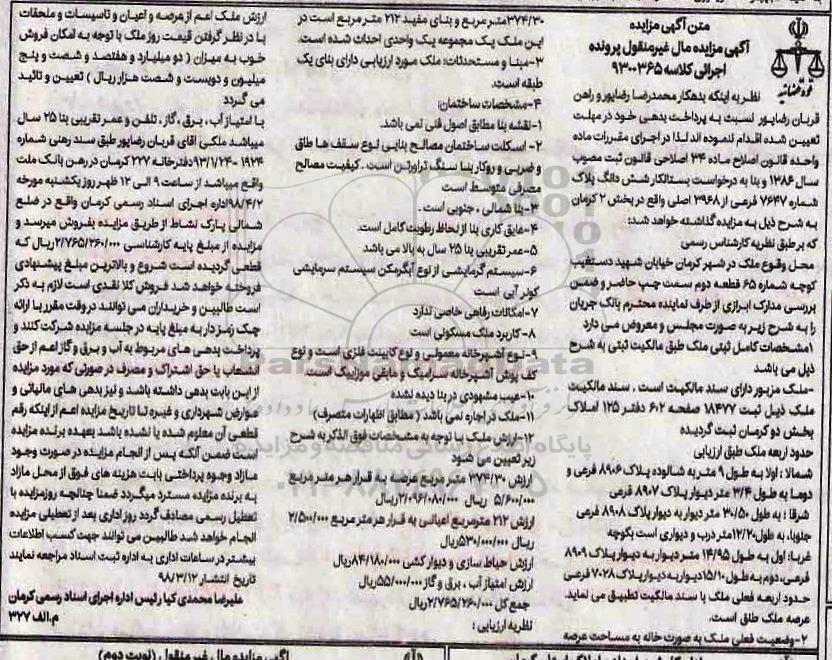 متن آگهی مزایده
آگهی مزایده مال غیرمنقول پرونده
اجرائی کلاسه ۹۳۰۰۳۶۵
نظر به اینکه بدهکار محمدرضا رضاپور و راهن
قربان رضاپور نسبت به پرداخت بدهی خود در مهلت
تعیین شده اقدام ننموده اند لذا در اجرای مقررات ماده
واحده قانون اصلاح ماده ۳۴ اصلاحی قانون ثبت مصوب
سال ۱۳۸۶ و بنا به درخواست بستانکار شش دانگ پلاک
شماره ۷۶۴۷ فرعی از ۳۹۶۸ اصلی واقع در بخش ۲ کرمان
به شرح ذیل به مزایده گذاشته خواهد شد:
که بر طبق نظریه کارشناس رسمی
محل وقوع ملک در شهر کرمان خیابان شهید دستغیب
کوچه شماره ۶۵ قطعه دوم سمت چپ حاضر و ضمن
بررسی مدارک ابرازی از طرف نماینده محترم بانک جریان
را به شرح زیر به صورت مجلس و معروض می دارد
۱مشخصات کامل ثبتی ملک طبق مالکیت ثبتی به شرح
ذیل می باشد
-ملک مزبور دارای سند مالکیت است . سند مالکیت
ملک ذیل ثبت ۱۸۴۷۷ صفحه ۶۰۲ دفتر ۱۲۵ املاک
بخش دو کرمان ثبت گردیده
حدود اربعه ملک طبق ارزیابی
شمالا : اولا به طول ۹ متر به شالوده پلاک ۸۹۰۶ فرعی و
دوما به طول ۳/۴ متر دیوار پلاک ۸۹۰۷ فرعی
شرقا : به طول ۳۰/۵۰ متر دیوار به دیوار پلاک ۸۹۰۸ فرعی
جنوبا، به طول ۱۲/۲۰متر درب و دیواری است بکوچه
غربا: اول به طول ۱۴/۹۵ متر دیوار به دیوار پلاک ۸۹۰۹
فرعی، دوم به طول ۱۵/۱۰ دیوار به دیوار پلاک ۷۰۲۸ فرعی
حدود اربعه فعلی ملک با سند مالکیت تطبیق می نماید.
عرصه ملک طلق است.
۲-وضعیت فعلی ملک به صورت خانه به مساحت عرصه
۳۷۴/۳۰متر مربع و بنای مفید ۲۱۲ متر مربع است در
این ملک یک مجموعه یک واحدی احداث شده است.
۳-مبنا و مستحدثات: ملک مورد ارزیابی دارای بنای یک
طبقه است.
۴-مشخصات ساختمان:
۱-نقشه بنا مطابق اصول فنی نمی باشد.
۲- اسکلت ساختمان مصالح بنایی نوع سقف ها طاق
و ضربی و روکار بنا سنگ تراورتن است . کیفیت مصالح
مصرفی متوسط است
۳-بنا شمالی ، جنوبی است .
۴-عایق کاری بنا از لحاظ رطوبت کامل است.
۵-عمر تقریبی بنا ۲۵ سال به بالا می باشد
۶-سیستم گرمایشی از نوع آبگرمکن سیستم سرمایشی
کولر آبی است
۷-امکانات رفاهی خاصی ندارد
۸-کاربرد ملک مسکونی است
۹-نوع آشپرخانه معمولی و نوع کابینت فلزی است و نوع
کف پوش آشپرخانه سرامیک و مابقی موزاییک است.
۱۰-عیب مشهودی در بنا دیده نشده
۱۱-ملک در اجاره نمی باشد ( مطابق اظهارات متصرف)
۱۲-ارزش ملک با توجه به مشخصات فوق الذکر به شرح
زیر تعیین می شود
ارزش ۳۷۴/۳۰ متر مربع عرصه به قرار هر متر مربع
۵/۶۰۰/۰۰۰ ریال ۲/۰۹۶/۰۸۰/۰۰۰ریال
ارزش ۲۱۲ مترمربع اعیانی به قرار هر متر مربع ۲/۵۰۰/۰۰۰
ریال ۵۳۰/۰۰۰/۰۰۰ریال
ارزش حیاط سازی و دیوار کشی ۸۴/۱۸۰/۰۰۰ریال
ارزش امتیاز آب ، برق و گاز ۵۵/۰۰۰/۰۰۰ریال
جمع کل ۲/۷۶۵/۲۶۰/۰۰۰ریال
نظریه ارزیابی :
ارزش ملک اعم از عرصه و اعیان و تاسیسات و ملحقات
با در نظر گرفتن قیمت روز ملک با توجه به امکان فروش
خوب به میزان ( دو میلیارد و هفتصد و شصت و پنج
میلیون و دویست و شصت هزار ریال ) تعیین و تائید
می گردد
با امتیاز آب ، برق ، گاز ، تلفن و عمر تقریبی بنا ۲۵ سال
میباشد ملکی آقای قربان رضاپور طبق سند رهنی شماره
۱۹۲۴ -۹۳/۱/۲۴دفترخانه ۲۲۷ کرمان در رهن بانک ملت
واقع میباشد از ساعت ۹ الی ۱۲ ظهر روز یکشنبه مورخه
۹۸/۴/۲اداره اجرای اسناد رسمی کرمان واقع در ضلع
شمالی پارک نشاط از طریق مزایده بفروش میرسد و
مزایده از مبلغ پایه کارشناسی ۲/۷۶۵/۲۶۰/۰۰۰ریال که
قطعی گردیده است شروع و بالاترین مبلغ پیشنهادی
فروخته خواهد شد فروش کلا نقدی است لازم به ذکر
است طالبین و خریداران می توانند در وقت مقرر با ارائه
چک رمزدار به مبلغ پایه در جلسه مزایده شرکت کنند و
پرداخت بدهی های مربوط به آب و برق و گاز اعم از حق
انشعاب یا حق اشتراک و مصرف در صورتی که مورد مزایده
از این بابت بدهی داشته باشد و نیز بدهی های مالیاتی و
عوارض شهرداری و غیره تا تاریخ مزایده اعم از اینکه رقم
قطعی آن معلوم شده یا نشده باشد بعهده برنده مزایده
است ضمن آنکه پس از انجام مزایده در صورت وجود
مازاد وجوه پرداختی بابت هزینه های فوق از محل مازاد
به برنده مزایده مسترد میگردد ضمنا چنانچه روز مزایده با
تعطیل رسمی مصادف گردد روز اداری بعد از تعطیلی مزایده
انجام خواهد شد طالبین می توانند جهت کسب اطلاعات
بیشتر در ساعات اداری به اداره ثبت اسناد مراجعه نمایند
تاریخ انتشار ۹۸/۳/۱۲
علیرضا محمدی کیا رئیس اداره اجرای اسناد رسمی کرمان
م.الف ۳۲۷
آگهی مزایده مال غیر منقول (نوبت دوم)